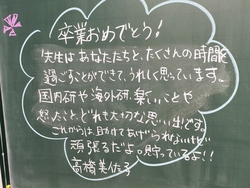 卒業おめでとう!
先生はあなたたちと、たくさんの時間を
過ごすことができて、うれしく思っています。
国内研や海外研、楽しいことや
怒ったこと、どれも大切な思い出です。
これからは、助けてあげられないけど
頑張るだよ。見守っているよ!!
高橋